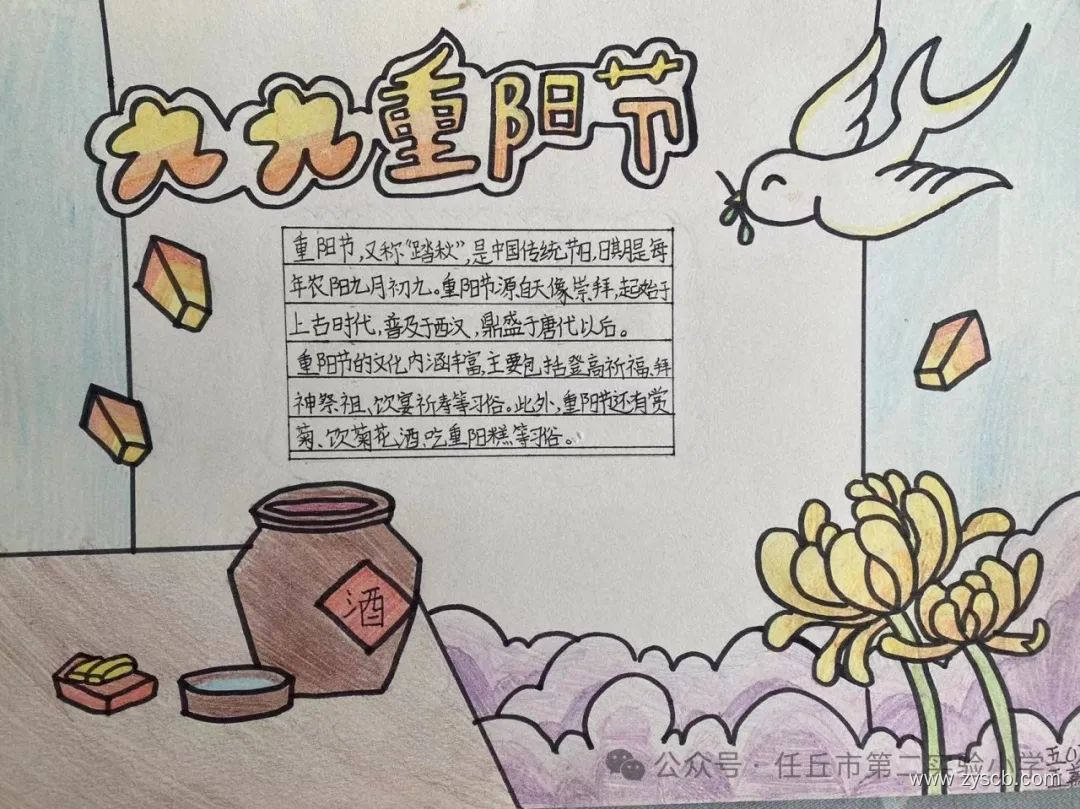 九九重阳节
重阳节,又称“踏秋”,是中国传统节日,日期是每
年农阳九月初九。重阳节源自天像崇拜,起始于
上古时代,普及于西汉,鼎盛于唐代以后。
重阳节的文化内涵丰富,主要包括登高祈福、拜
神祭祖、饮宴祈寿等习俗。此外,重阳节还有赏
菊、饮菊花酒、吃重阳糕等习俗。
酒
公众号·任丘市第二实验小学
www.zyscb.com